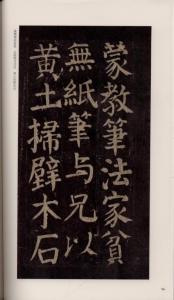 蒙教筆法家貧
無紙筆与兄以
黄土掃壁木石